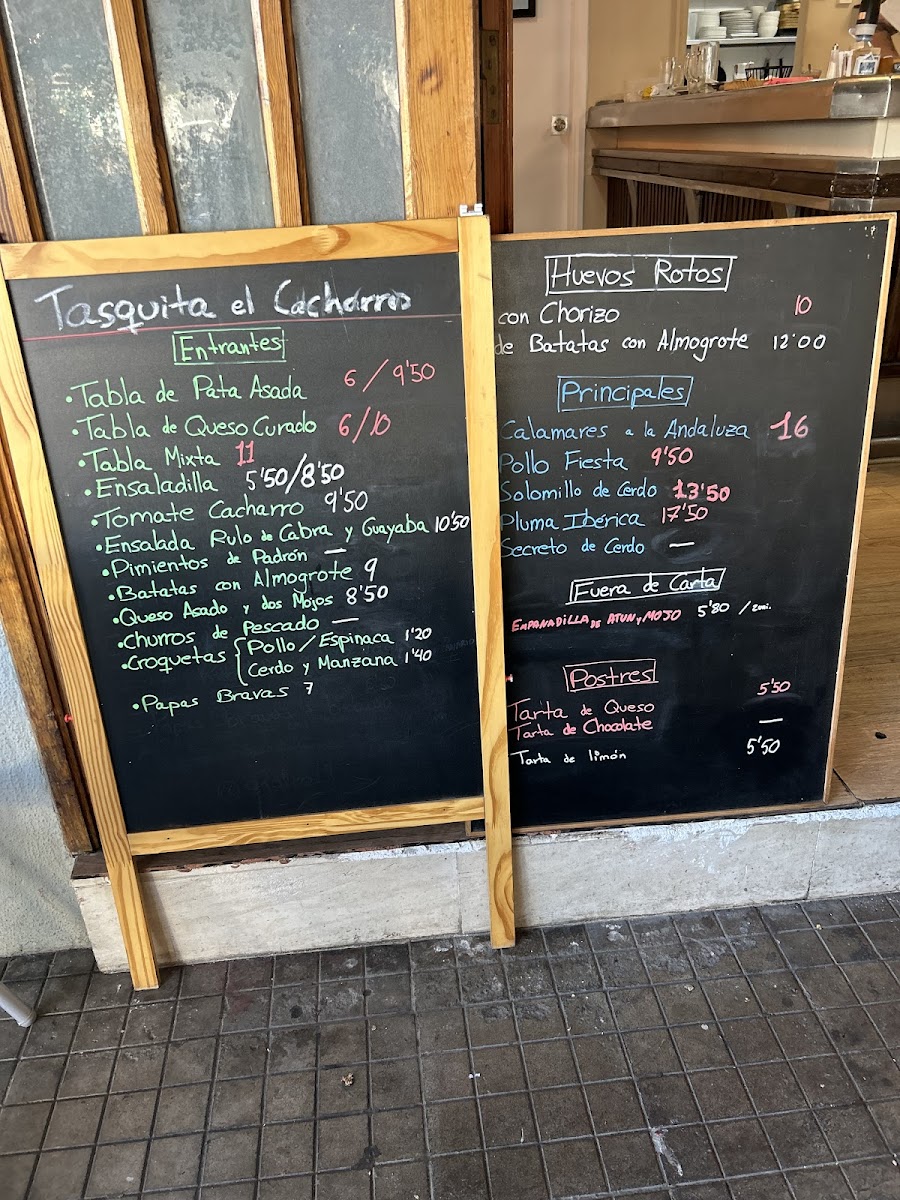 Tasquita el Cacharro
Entrantes
• Tabla de Pata Asada 6 / 9'50
• Tabla de Queso Curado 6/10
• Tabla Mixta 11
• Ensaladilla 5'50/8'50
• Tomate Cacharro 9'50
• Ensalada Rulo de Cabra y Guayaba 10'50
• Pimientos de Padrón —
• Batatas con Almogrote 9
• Queso Asado y dos Mojos 8'50
• Churros de Pescado —
• Croquetas { Pollo / Espinaca 1'20
Cerdo y Manzana 1'40
• Papas Bravas 7
Huevos Rotos
con Chorizo 10
de Batatas con Almogrote 12'00
Principales
Calamares a la Andaluza 16
Pollo Fiesta 9'50
Solomillo de Cerdo 13'50
Pluma Ibérica 17'50
Secreto de Cerdo —
Fuera de Carta
EMPANADILLA DE ATUN y MOJO 5'80 /
Postres
Tarta de Queso 5'50
Tarta de Chocolate —
Tarta de limón 5'50